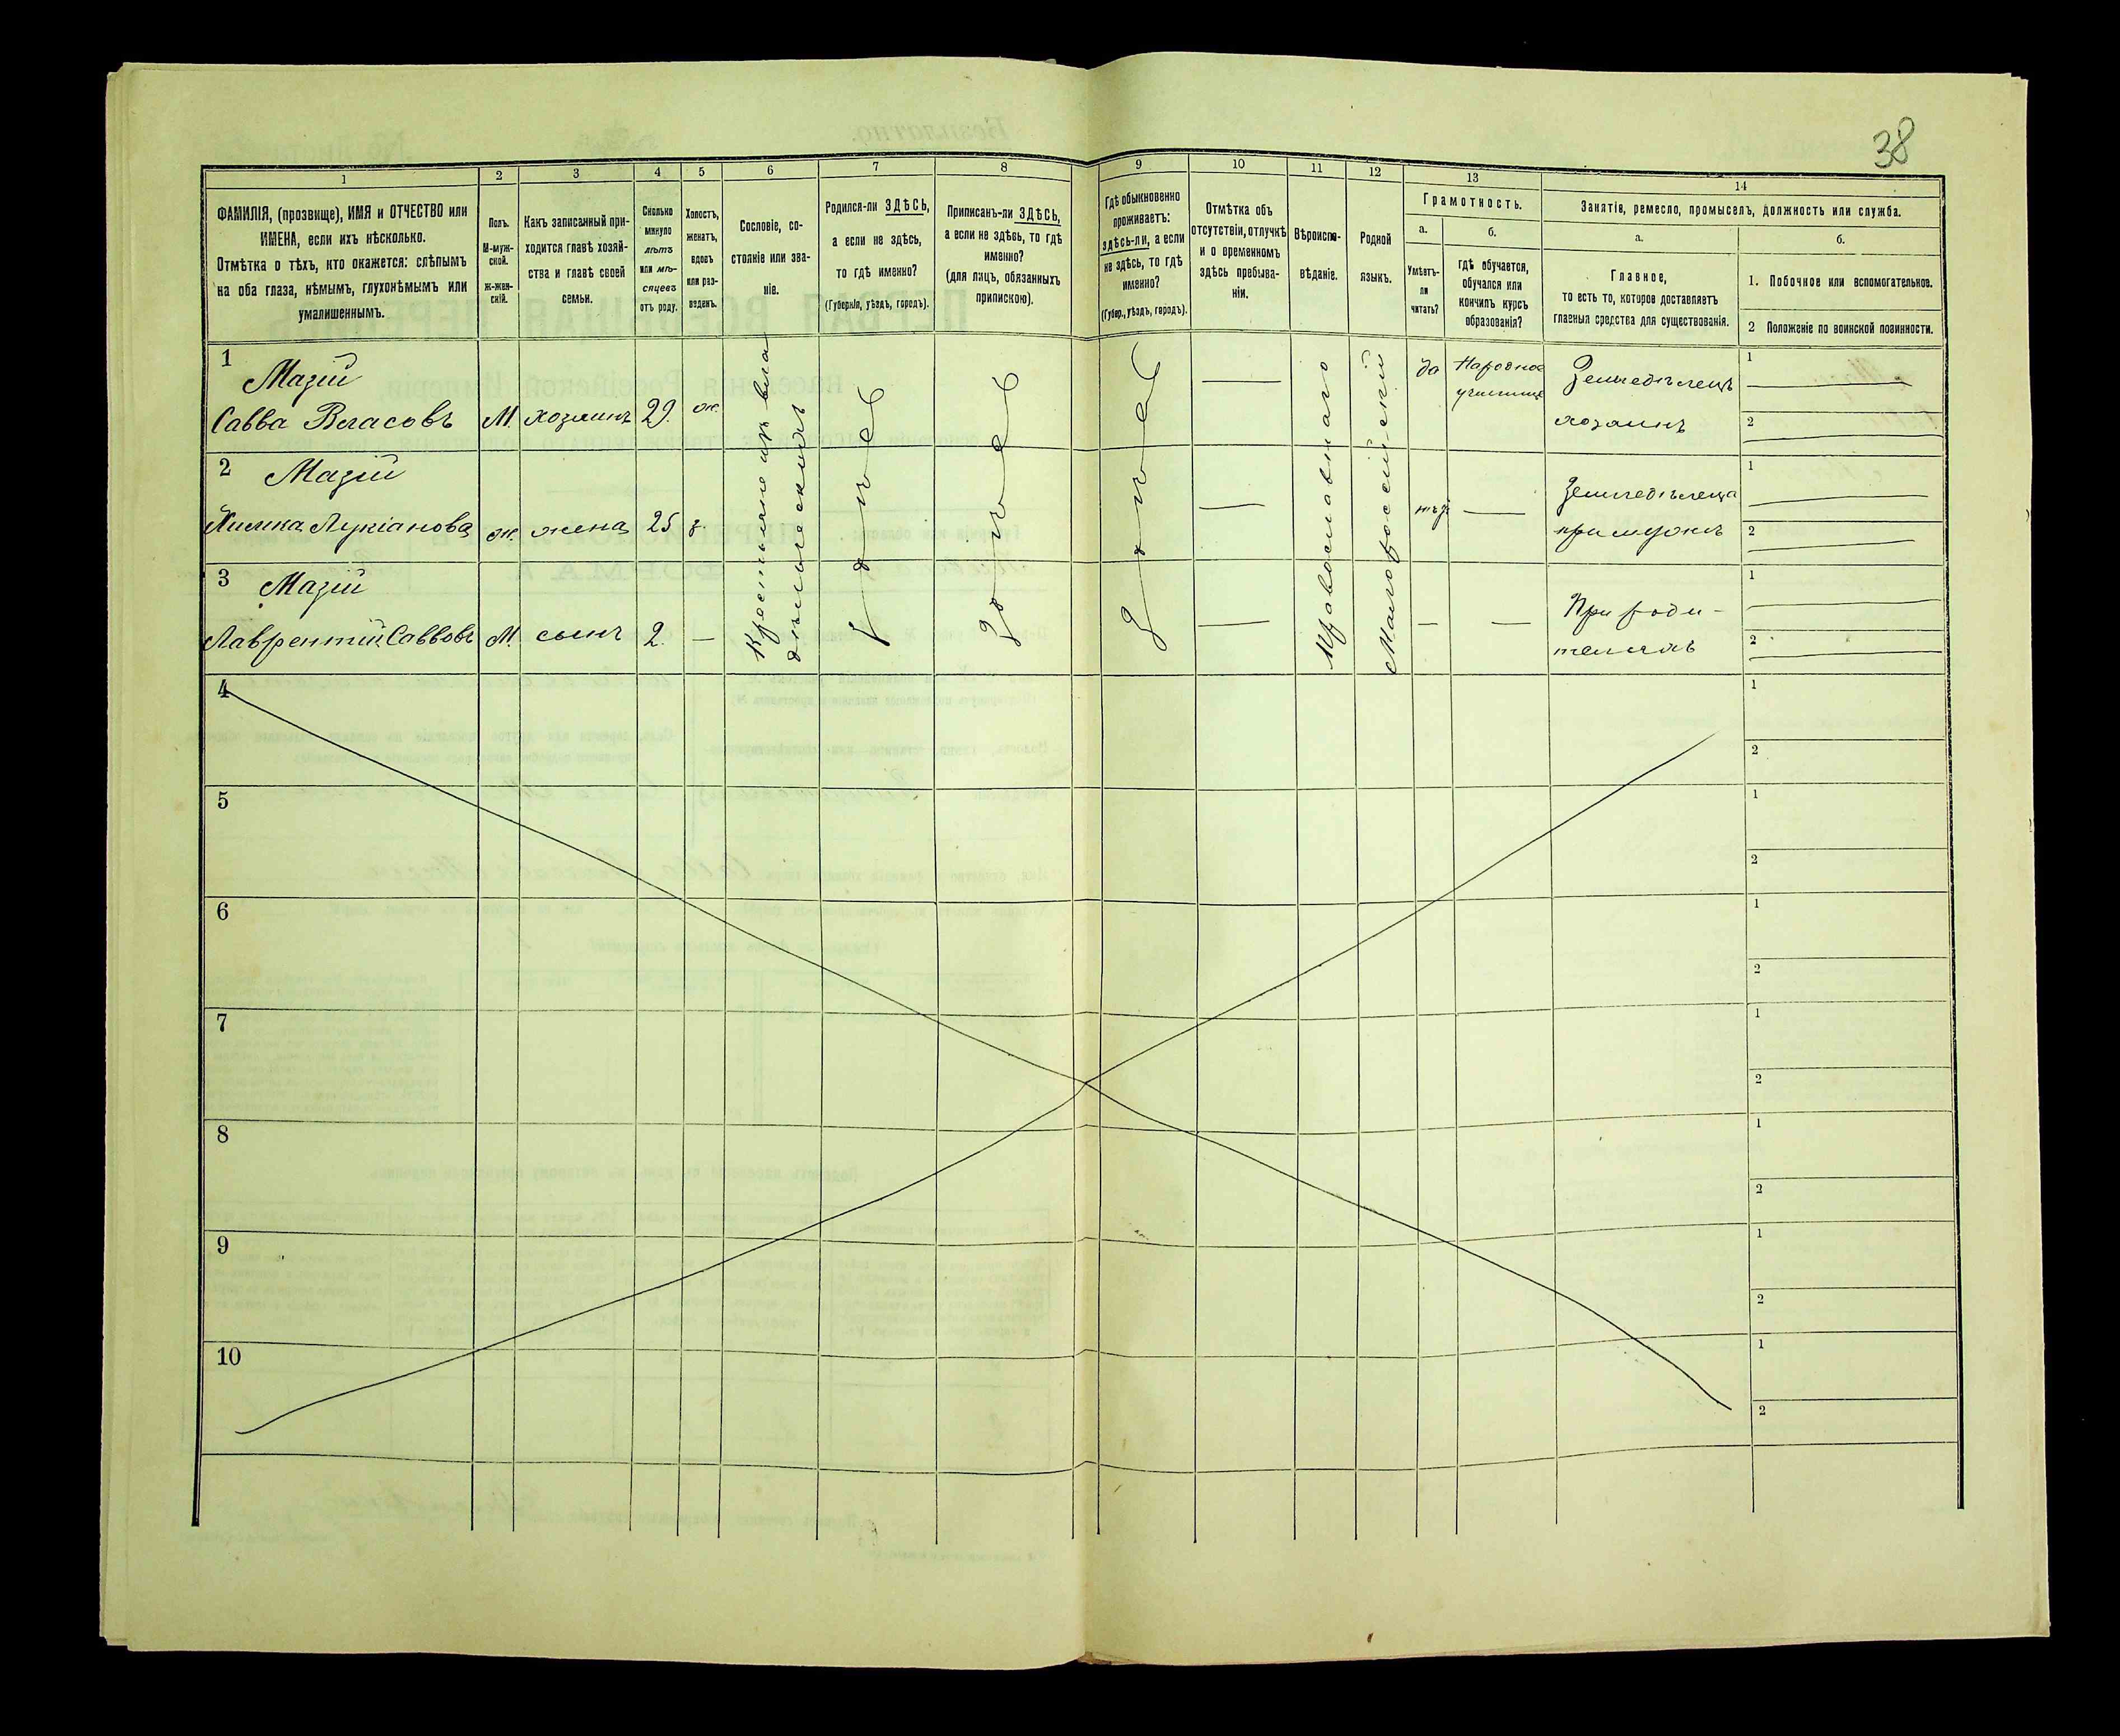 38
1
2
3
4
5
6
7
8
9
10
11
12
13
14
ФАМИЛІЯ, (прозвище), ИМЯ и ОТЧЕСТВО или
ИМЕНА, если ихъ нѣсколько.
Отмѣтка о тѣхъ, кто окажется: слѣпымъ
на оба глаза, нѣмымъ, глухонѣмымъ или
умалишеннымъ.
Полъ.
М-муж-
ской.
Ж-жен-
скій.
Какъ записанный при-
ходится главѣ хозяй-
ства и главѣ своей
семьи.
Сколько
минуло
лѣтъ
или мѣ-
сяцевъ
отъ роду.
Холостъ,
женатъ,
вдовъ
или раз-
веденъ.
Сословіе, со-
стояніе или зва-
ніе.
Родился-ли ЗДѢСЬ,
а если не здѣсь,
то гдѣ именно?
(Губернія, уѣздъ, городъ).
Приписанъ-ли ЗДѢСЬ,
а если не здѣсь, то гдѣ
именно?
(для лицъ, обязанныхъ
припискою).
Гдѣ обыкновенно
проживаетъ:
здѣсь-ли, а если
не здѣсь, то гдѣ
именно?
(Губер., уѣздъ, городъ).
Отмѣтка объ
отсутствіи, отлучкѣ
и о временномъ
здѣсь пребыва-
ніи.
Вѣроиспо-
вѣданіе.
Родной
языкъ.
Грамотность.
а.
Умѣетъ-
ли
читать?
б.
гдѣ обучается,
обучался или
кончилъ курсъ
образованія?
Занятіе, ремесло, промыселъ, должность или служба.
а.
Главное,
то есть то, которое доставляетъ
главныя средства для существованія.
б.
1. Побочное или вспомогательное.
2 Положеніе по воинской повинности.
1
Мазій
Савва Власовъ
М.
хозяинъ
29.
ж.
Крестьяне изъ вла
дѣльческихъ
здѣсь
здѣсь
здѣсь
Православнаго
Малороссійскій
да
Народное
училище
Земледѣлецъ
хозяинъ
1
2
2
Мазій
Лукіанова
ж.
жена
25
з.
нѣт
Земледѣлеца
при мужѣ
1
2
3
Мазій
Лаврентій Саввовъ
М.
сынъ
2.
При роди-
теляхъ
1
2
4
1
2
5
1
2
6
1
2
7
1
2
8
1
2
9
1
2
10
1
2